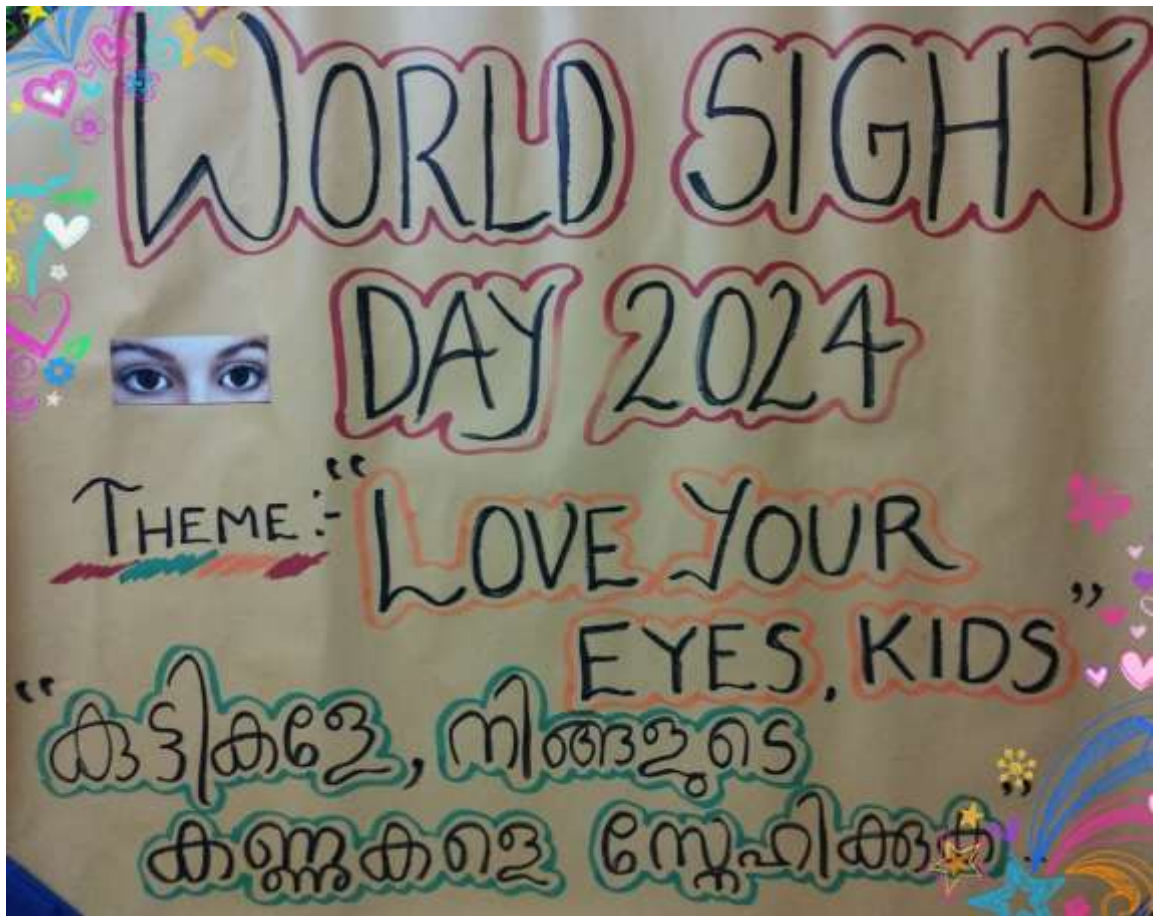 WORLD SIGHT
DAY 2024
THEME:- "LOVE YOUR
EYES, KIDS"
"കുട്ടികളേ, നിങ്ങളുടെ
കണ്ണുകളെ സ്നേഹിക്കുക"..